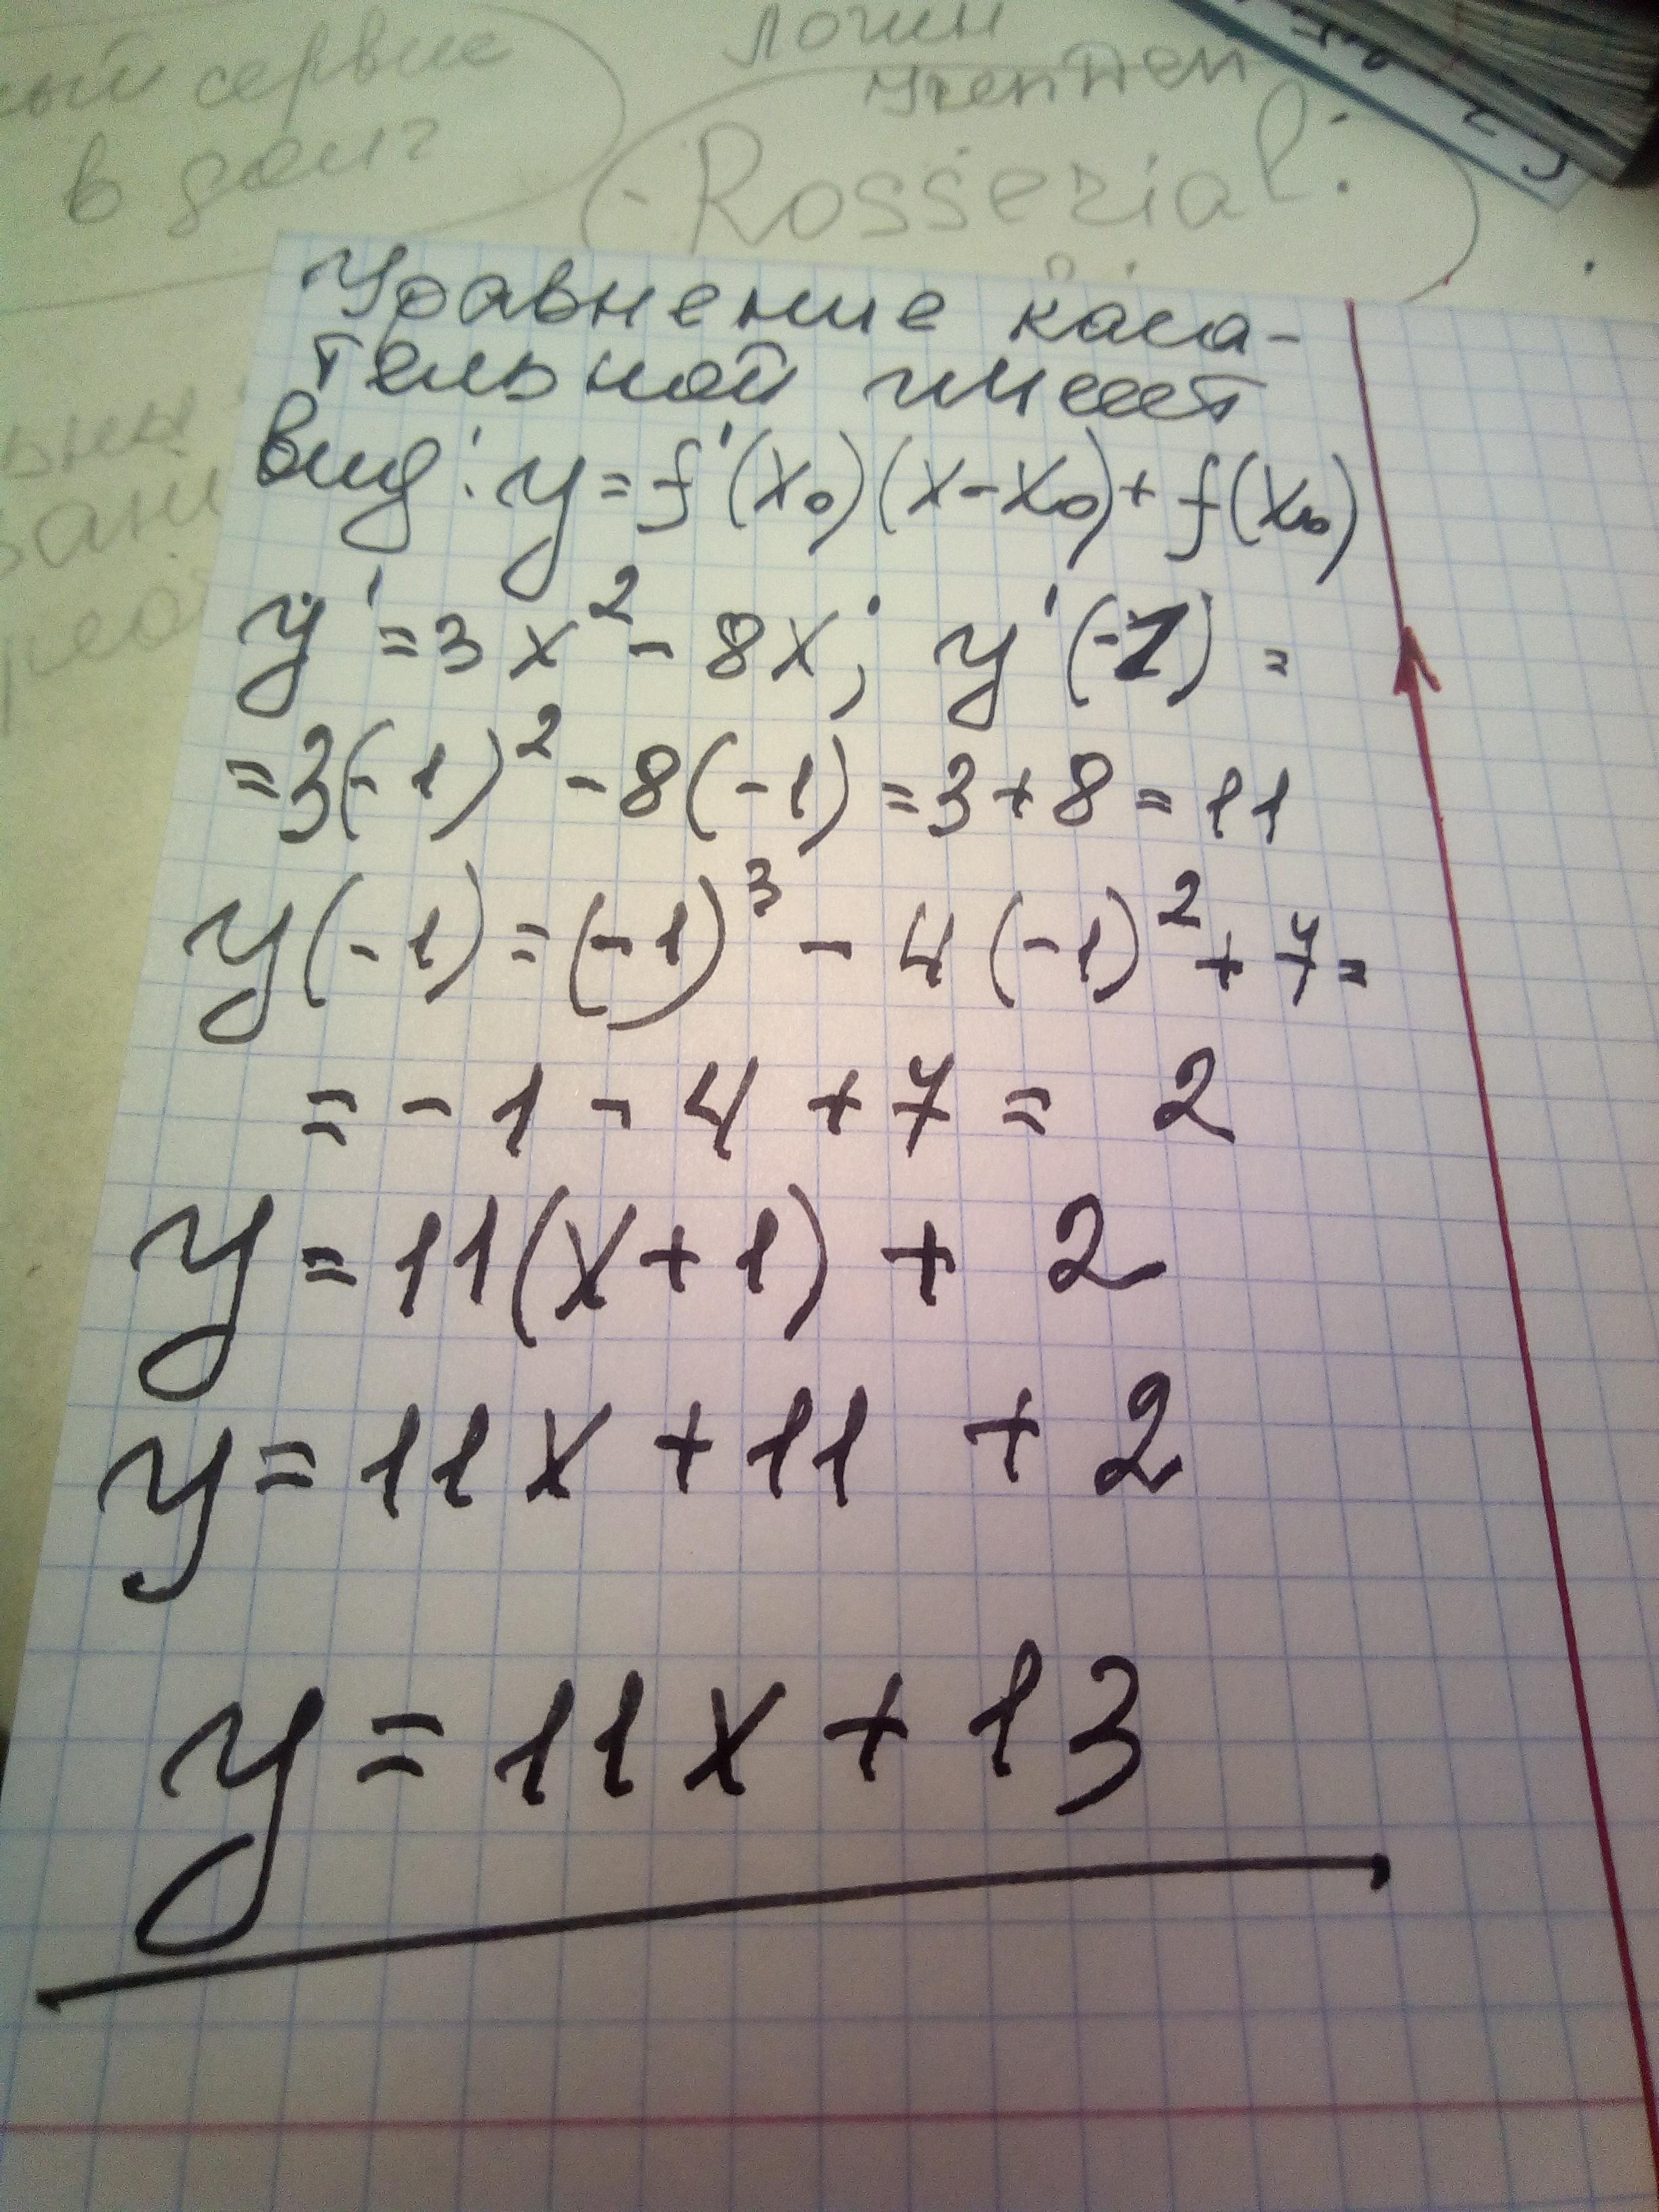 сервис
в долг
логин
Rosserial:
Уравнение каса-
тельной имеет
вид: y = f'(x₀)(x-x₀) + f(x₀)
y' = 3x² - 8x; y'(-1) =
= 3(-1)² - 8(-1) = 3 + 8 = 11
y(-1) = (-1)³ - 4(-1)² + 7 =
= -1 - 4 + 7 = 2
y = 11(x+1) + 2
y = 11x + 11 + 2
y = 11x + 13